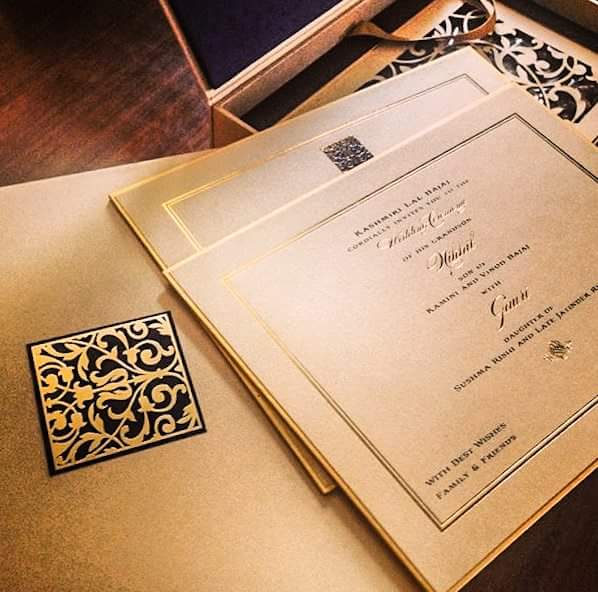 KASHMIRI LAL BAJAJ
CORDIALLY INVITES YOU TO THE
Wedding Ceremony
OF HIS GRANDSON
SON OF
KAMINI AND VINOD BAJAJ
WITH
DAUGHTER OF
SUSHMA RISHI AND LATE JATINDER
WITH BEST WISHES
FAMILY & FRIENDS